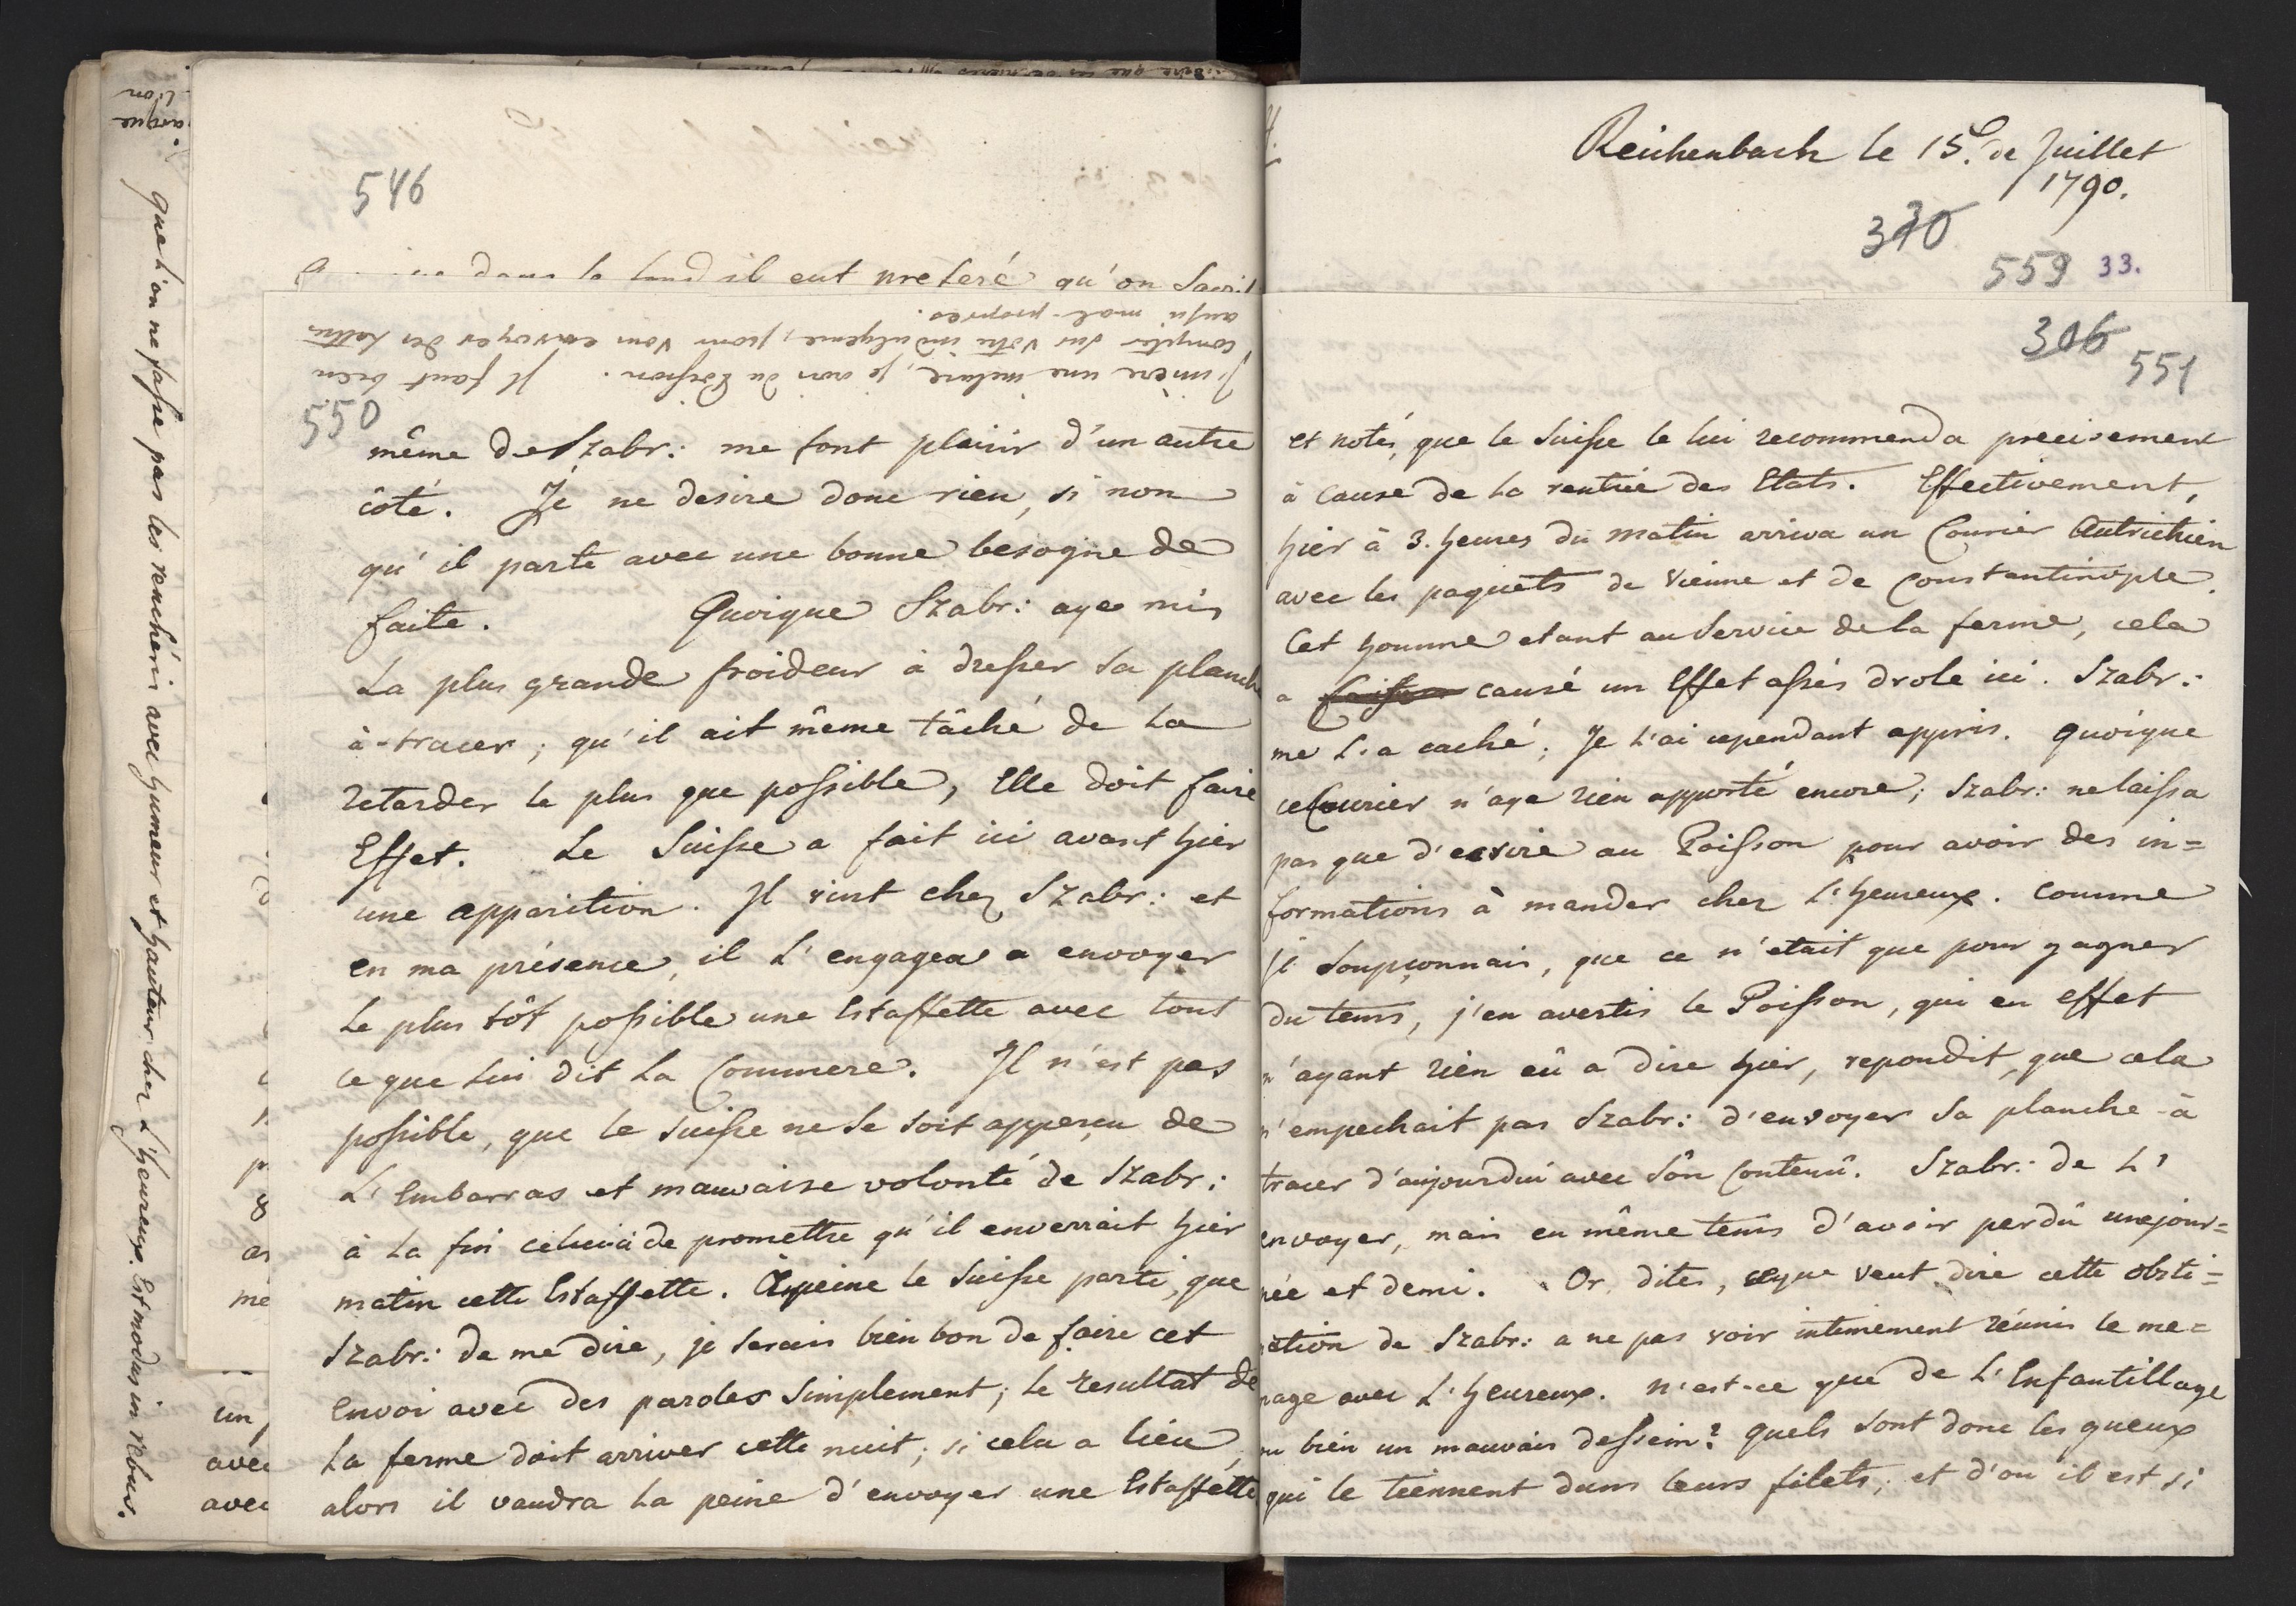 546
dans le fond il eut preferé qu'on
J'insère une incluse, je crois du Poisson. Il faut bien
compter sur votre indulgence, pour vous envoyer des Lettres
aussi mal-propres.
550
même de Szabr: me font plaisir d'un autre
côté. Je ne desire donc rien, si non
qu'il parte avec une bonne besogne de
faite. Quoique Szabr: aye mis
La plus grande froideur à dresser sa planche
à-tracer; qu'il ait même tâché de La
retarder le plus que possible, Elle doit faire
Effet. Le Suisse a fait ici avant hier
une apparition. Il vint chez Szabr: et
en ma présence, il L'engagea a envoyer
Le plus tôt possible une Estaffette avec tout
ce que Lui dit La Commere. Il n'est pas
possible, que le Suisse ne Se soit apperçu de
L'Embarras et mauvaise volonté de Szabr:
à La fin celui ci de promettre qu'il enverrait hier
matin cette Estaffette. Apeine le Suisse parti, que
Szabr: de me dire, je serais bien bon de faire cet
Envoi avec des paroles Simplement; Le resultat de
La ferme doit arriver cette nuit; si cela a lieu,
alors il vaudra La peine d'envoyer une Estaffette
que L'on ne fasse pas les rencheris avec humeur et hauteur chez L'heureux. Est modus in rebus.
un
avec
avec
me
Reichenbach le 15. de Juillet
1790.
370
559 33.
306
551
et notés, que le Suisse le lui recommenda precisement
à Cause de La rentrée des Etats. Effectivement,
hier à 3. heures du matin arriva un Courier Autrichien
avec les paquets de Vienne et de Constantinople.
Cet homme etant au Service de la ferme, cela
a causé un Effet assés drole ici. Szabr:
me L'a caché; Je L'ai cependant appris. Quoique
ce Courier n'aye rien apporté encore; Szabr: ne laissa
pas que d'ecrire au Poisson pour avoir des in=
formations à mander chez L'heureux. Comme
je Soupçonnais, que ce n'etait que pour gagner
du tems, j'en avertis le Poisson, qui en effet
n'ayant rien eû a dire hier, repondit, que cela
n'empechait pas Szabr: d'envoyer Sa planche-à
tracer d'aujourdui avec Sôn Contenû. Szabr: de L'
envoyer, mais en même tems d'avoir perdû une jour=
née et demi. Or, dites, ce que veut dire cette obsti=
nation de Szabr: a ne pas voir intimement réunis le me=
nage avec L'heureux. n'est-ce que de L'Enfantillage
ou bien un mauvais dessein? Quels sont donc les gueux
qui le tiennent dans leurs filets; et d'ou il est si